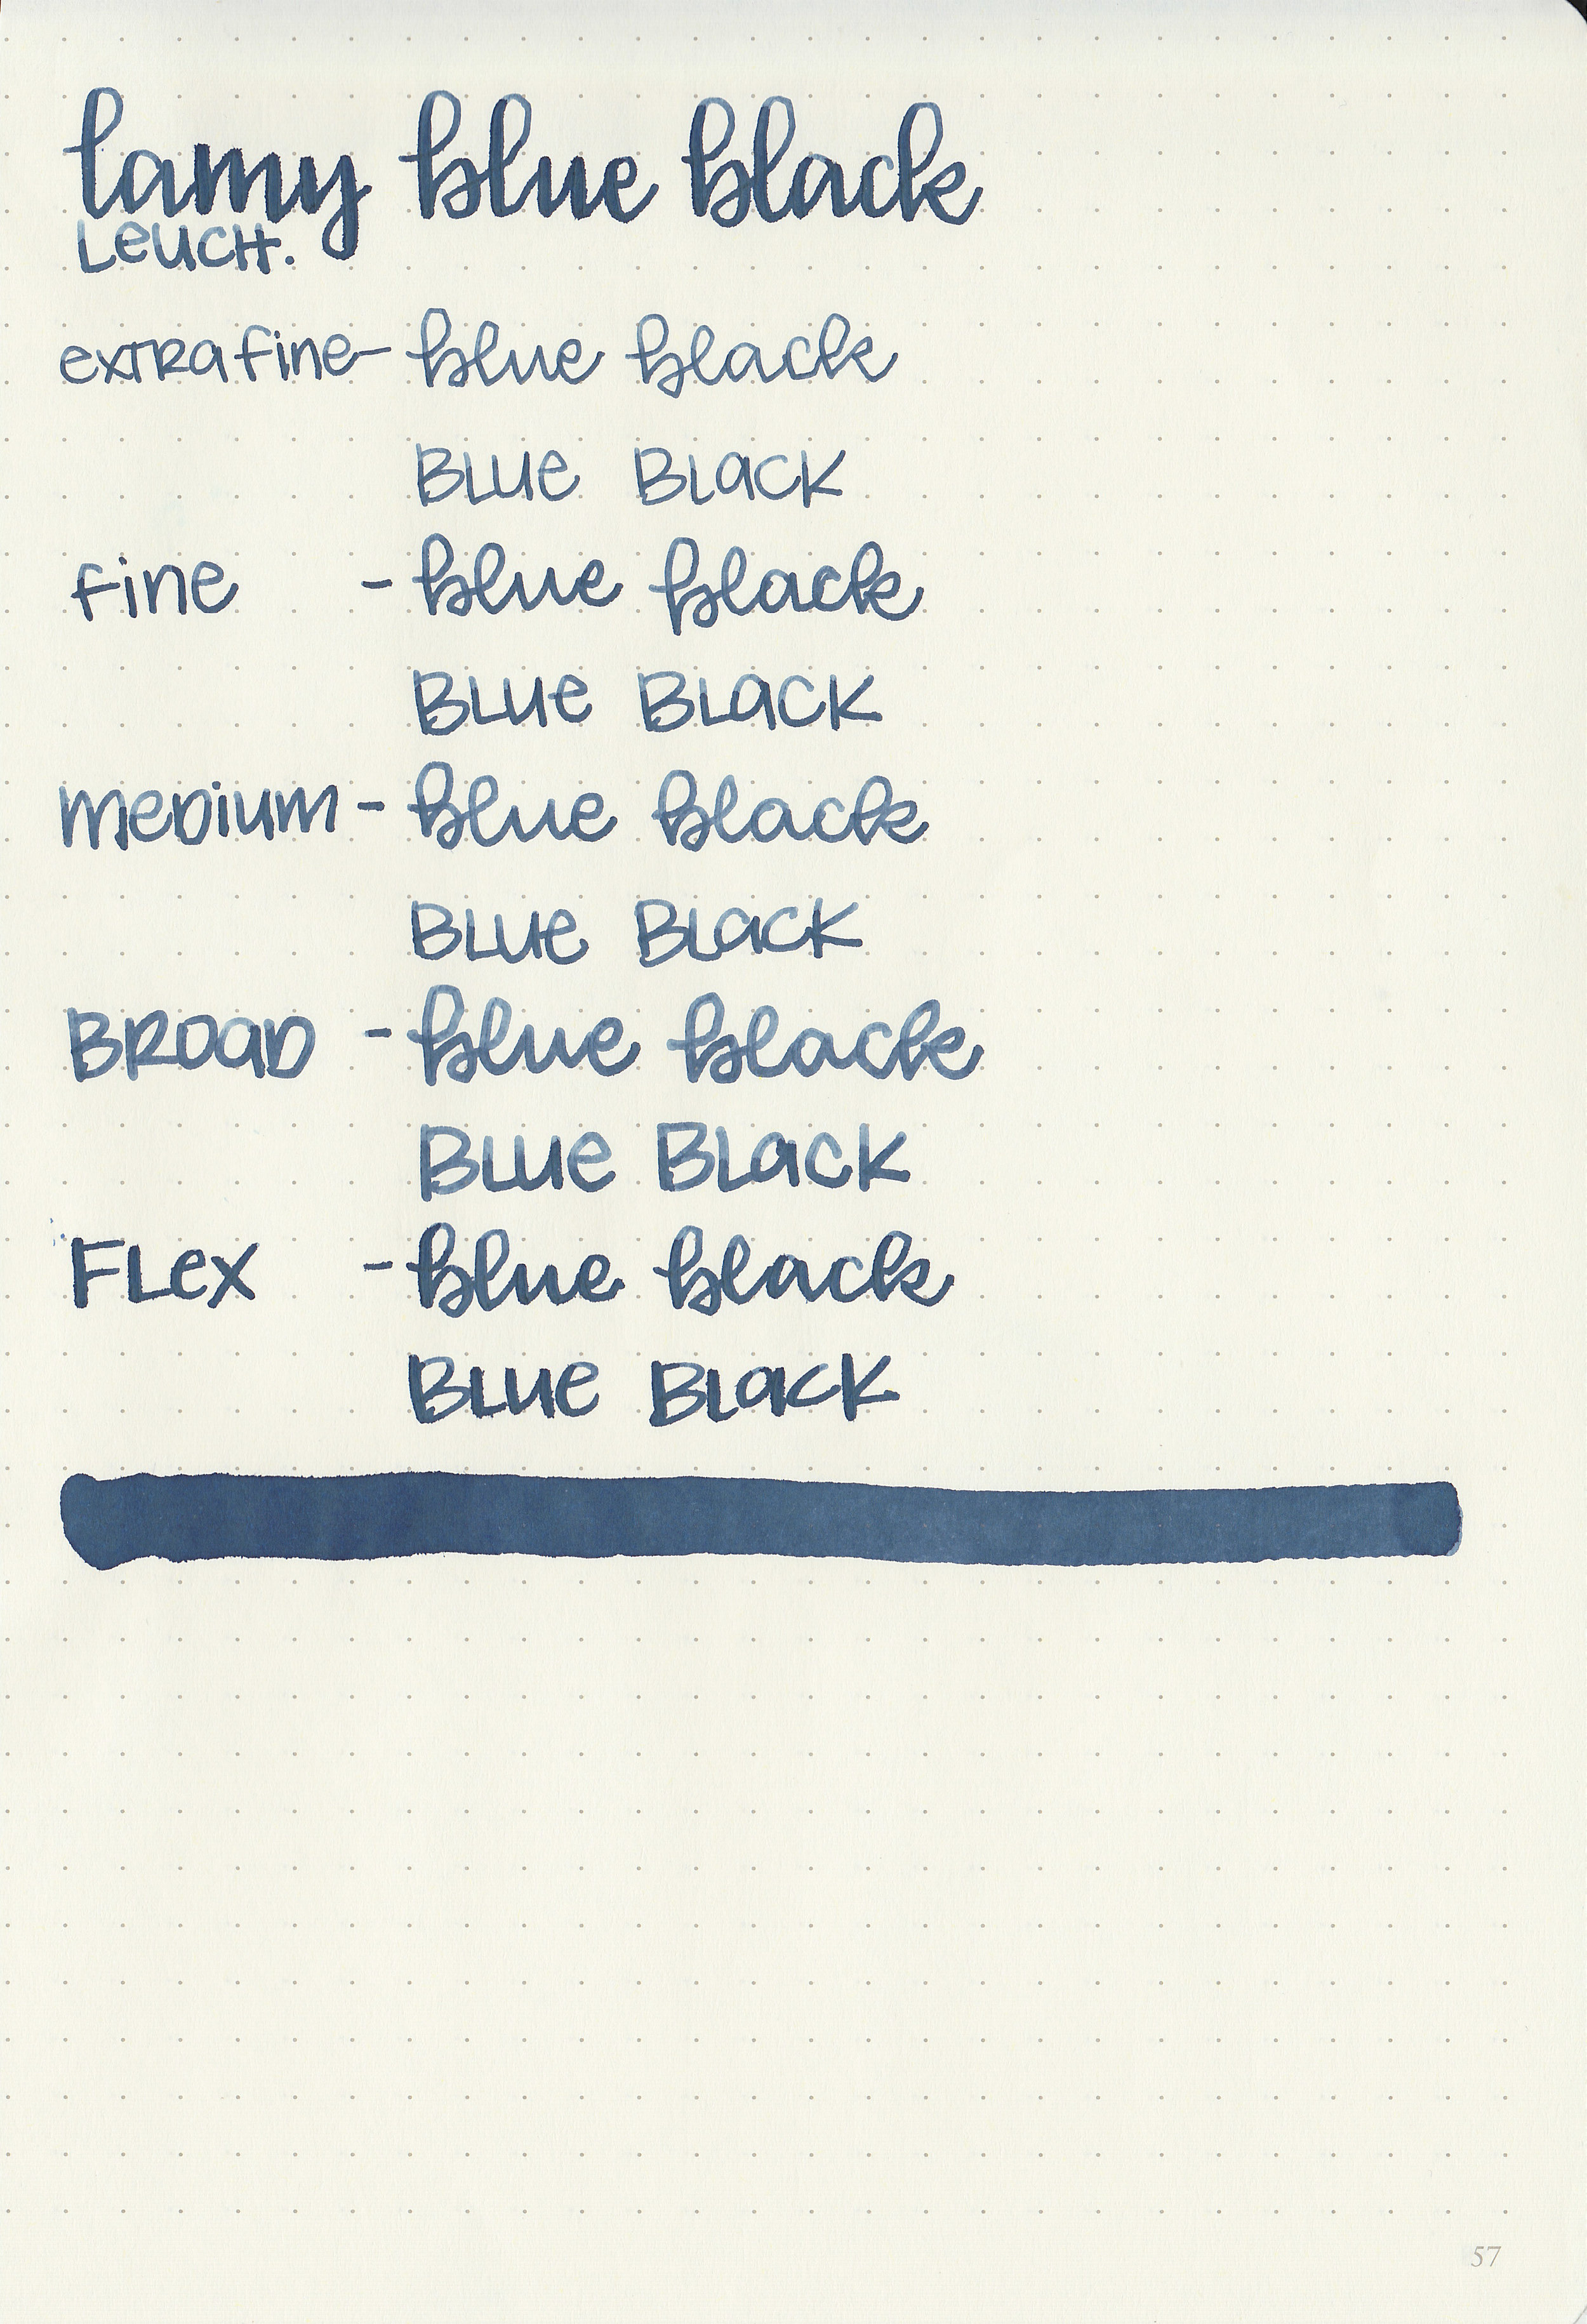 lamy blue black
Leuch.
extra fine - blue black
BLUe BLaCK
fine - blue black
BLUe BLaCK
meDium - blue black
BLUe BLaCK
BROaD - blue black
BLUe BLaCK
FLex - blue black
BLUe BLaCK
57